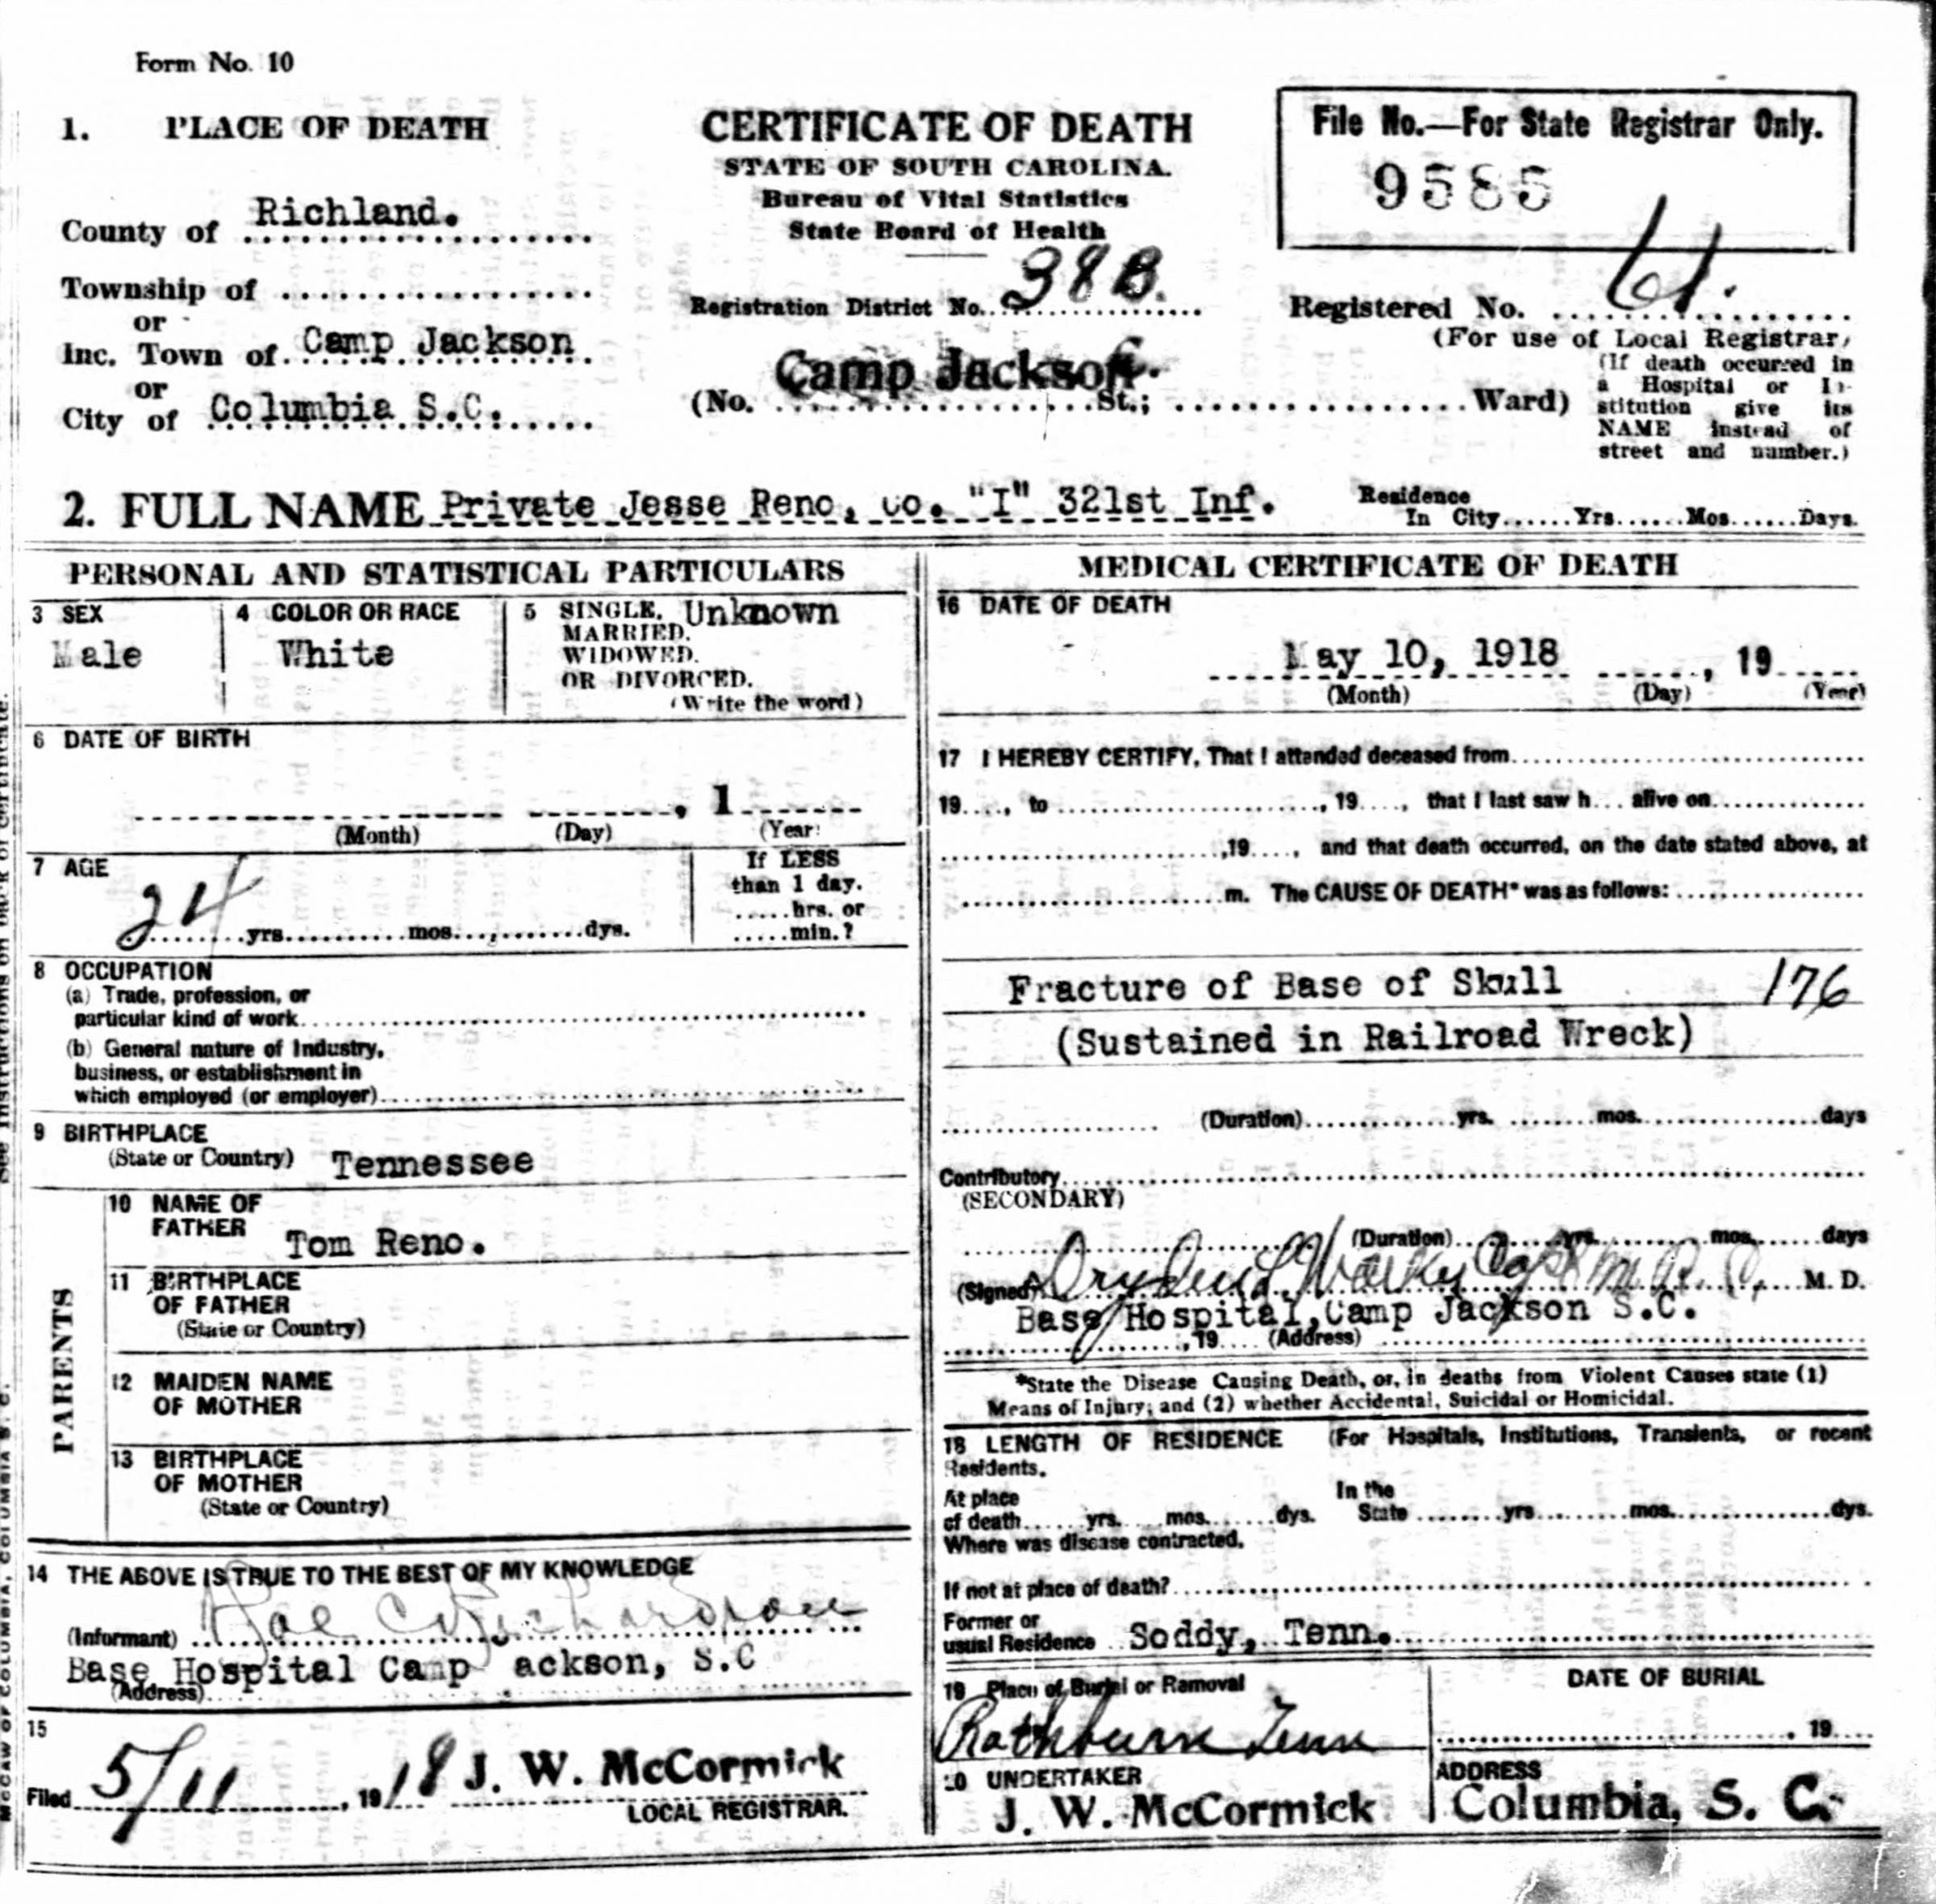 Form No. 10
1. PLACE OF DEATH
County of Richland.
Township of
or
Inc. Town of Camp Jackson
or
City of Columbia S.C.
CERTIFICATE OF DEATH
STATE OF SOUTH CAROLINA.
Bureau of Vital Statistics
State Board of Health
Registration District No. 38B.
Camp Jackson
(No. St.; Ward)
File No.—For State Registrar Only.
9585
Registered No. 61.
(For use of Local Registrar)
(If death occurred in
a Hospital or In-
stitution give its
NAME instead of
street and number.)
2. FULL NAME Private Jesse Reno, co. "I" 321st Inf.
Residence
In City......Yrs......Mos......Days.
PERSONAL AND STATISTICAL PARTICULARS
3 SEX
Male
4 COLOR OR RACE
White
5 SINGLE, Unknown
MARRIED.
WIDOWED.
OR DIVORCED.
(Write the word)
6 DATE OF BIRTH
, 1
(Month) (Day) (Year)
7 AGE
24 yrs. mos. dys.
If LESS
than 1 day.
.....hrs. or
.....min.?
8 OCCUPATION
(a) Trade, profession, or
particular kind of work
(b) General nature of Industry,
business, or establishment in
which employed (or employer)
9 BIRTHPLACE
(State or Country) Tennessee
PARENTS
10 NAME OF
FATHER Tom Reno.
11 BIRTHPLACE
OF FATHER
(State or Country)
12 MAIDEN NAME
OF MOTHER
13 BIRTHPLACE
OF MOTHER
(State or Country)
14 THE ABOVE IS TRUE TO THE BEST OF MY KNOWLEDGE
(Informant) C Richardson
Base Hospital Camp ackson, S.C
(Address)
15
Filed 5/11, 1918 J. W. McCormick
LOCAL REGISTRAR.
MEDICAL CERTIFICATE OF DEATH
16 DATE OF DEATH
May 10, 1918 , 19
(Month) (Day) (Year)
17 I HEREBY CERTIFY, That I attended deceased from
19...., to , 19...., that I last saw h... alive on
,19...., and that death occurred, on the date stated above, at
m. The CAUSE OF DEATH* was as follows:
Fracture of Base of Skull 176
(Sustained in Railroad Wreck)
(Duration) yrs. mos. days
Contributory
(SECONDARY)
(Duration) yrs. mos. days
(Signed) Capt M.R.C. M. D.
Base Hospital, Camp Jackson S.C.
,19.... (Address)
*State the Disease Causing Death, or, in deaths from Violent Causes state (1)
Means of Injury; and (2) whether Accidental, Suicidal or Homicidal.
18 LENGTH OF RESIDENCE (For Hospitals, Institutions, Transients, or recent
Residents.
At place In the
of death......yrs.....mos.......dys. State ........yrs.........mos..............dys.
Where was disease contracted,
If not at place of death?
Former or
usual Residence Soddy, Tenn.
19 Place of Burial or Removal
Rathburn Tenn
DATE OF BURIAL
, 19
20 UNDERTAKER
J. W. McCormick
ADDRESS
Columbia, S. C.